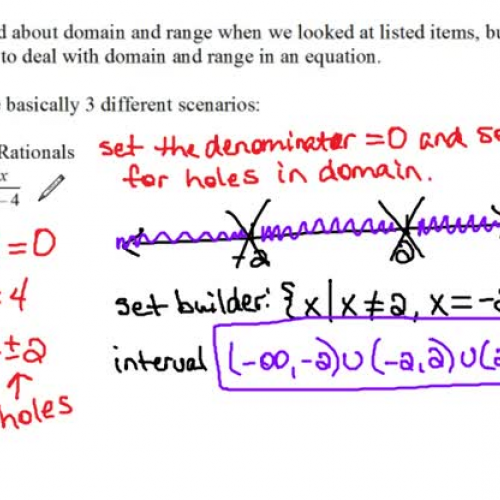 about domain and range when we looked at listed items,
to deal with domain and range in an equation.
basically 3 different scenarios:
Rationals
set the denominator =0 and
x
for holes in domain.
-4
=0
+2
2
4
set builder: {x|x≠2, x=-2
±2
interval (-∞,-2)∪(-2,2)∪(2
↑
holes